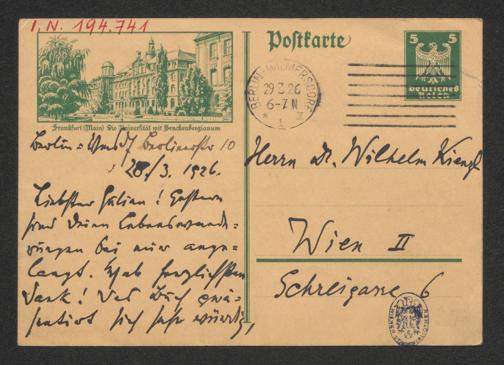 I. N. 194.741
Frankfurt (Main) Die Universität mit Senckenbergianum
Postkarte
5 5
Deutsches
Reich
BERLIN-WILMERSDORF
29.3.26
6-7 N
* 1 X
Berlin-Wmsdf Berlinerstr 10
28./3. 1926.
Liebster Julian! Gestern
sind Deine Lebenserinne-
rungen bei mir ange-
langt. Hab herzlichsten
Dank! Das Buch präs-
sentiert sich sehr würdig,
Herrn Dr. Wilhelm Kienzl
Wien II
Schreigasse 6